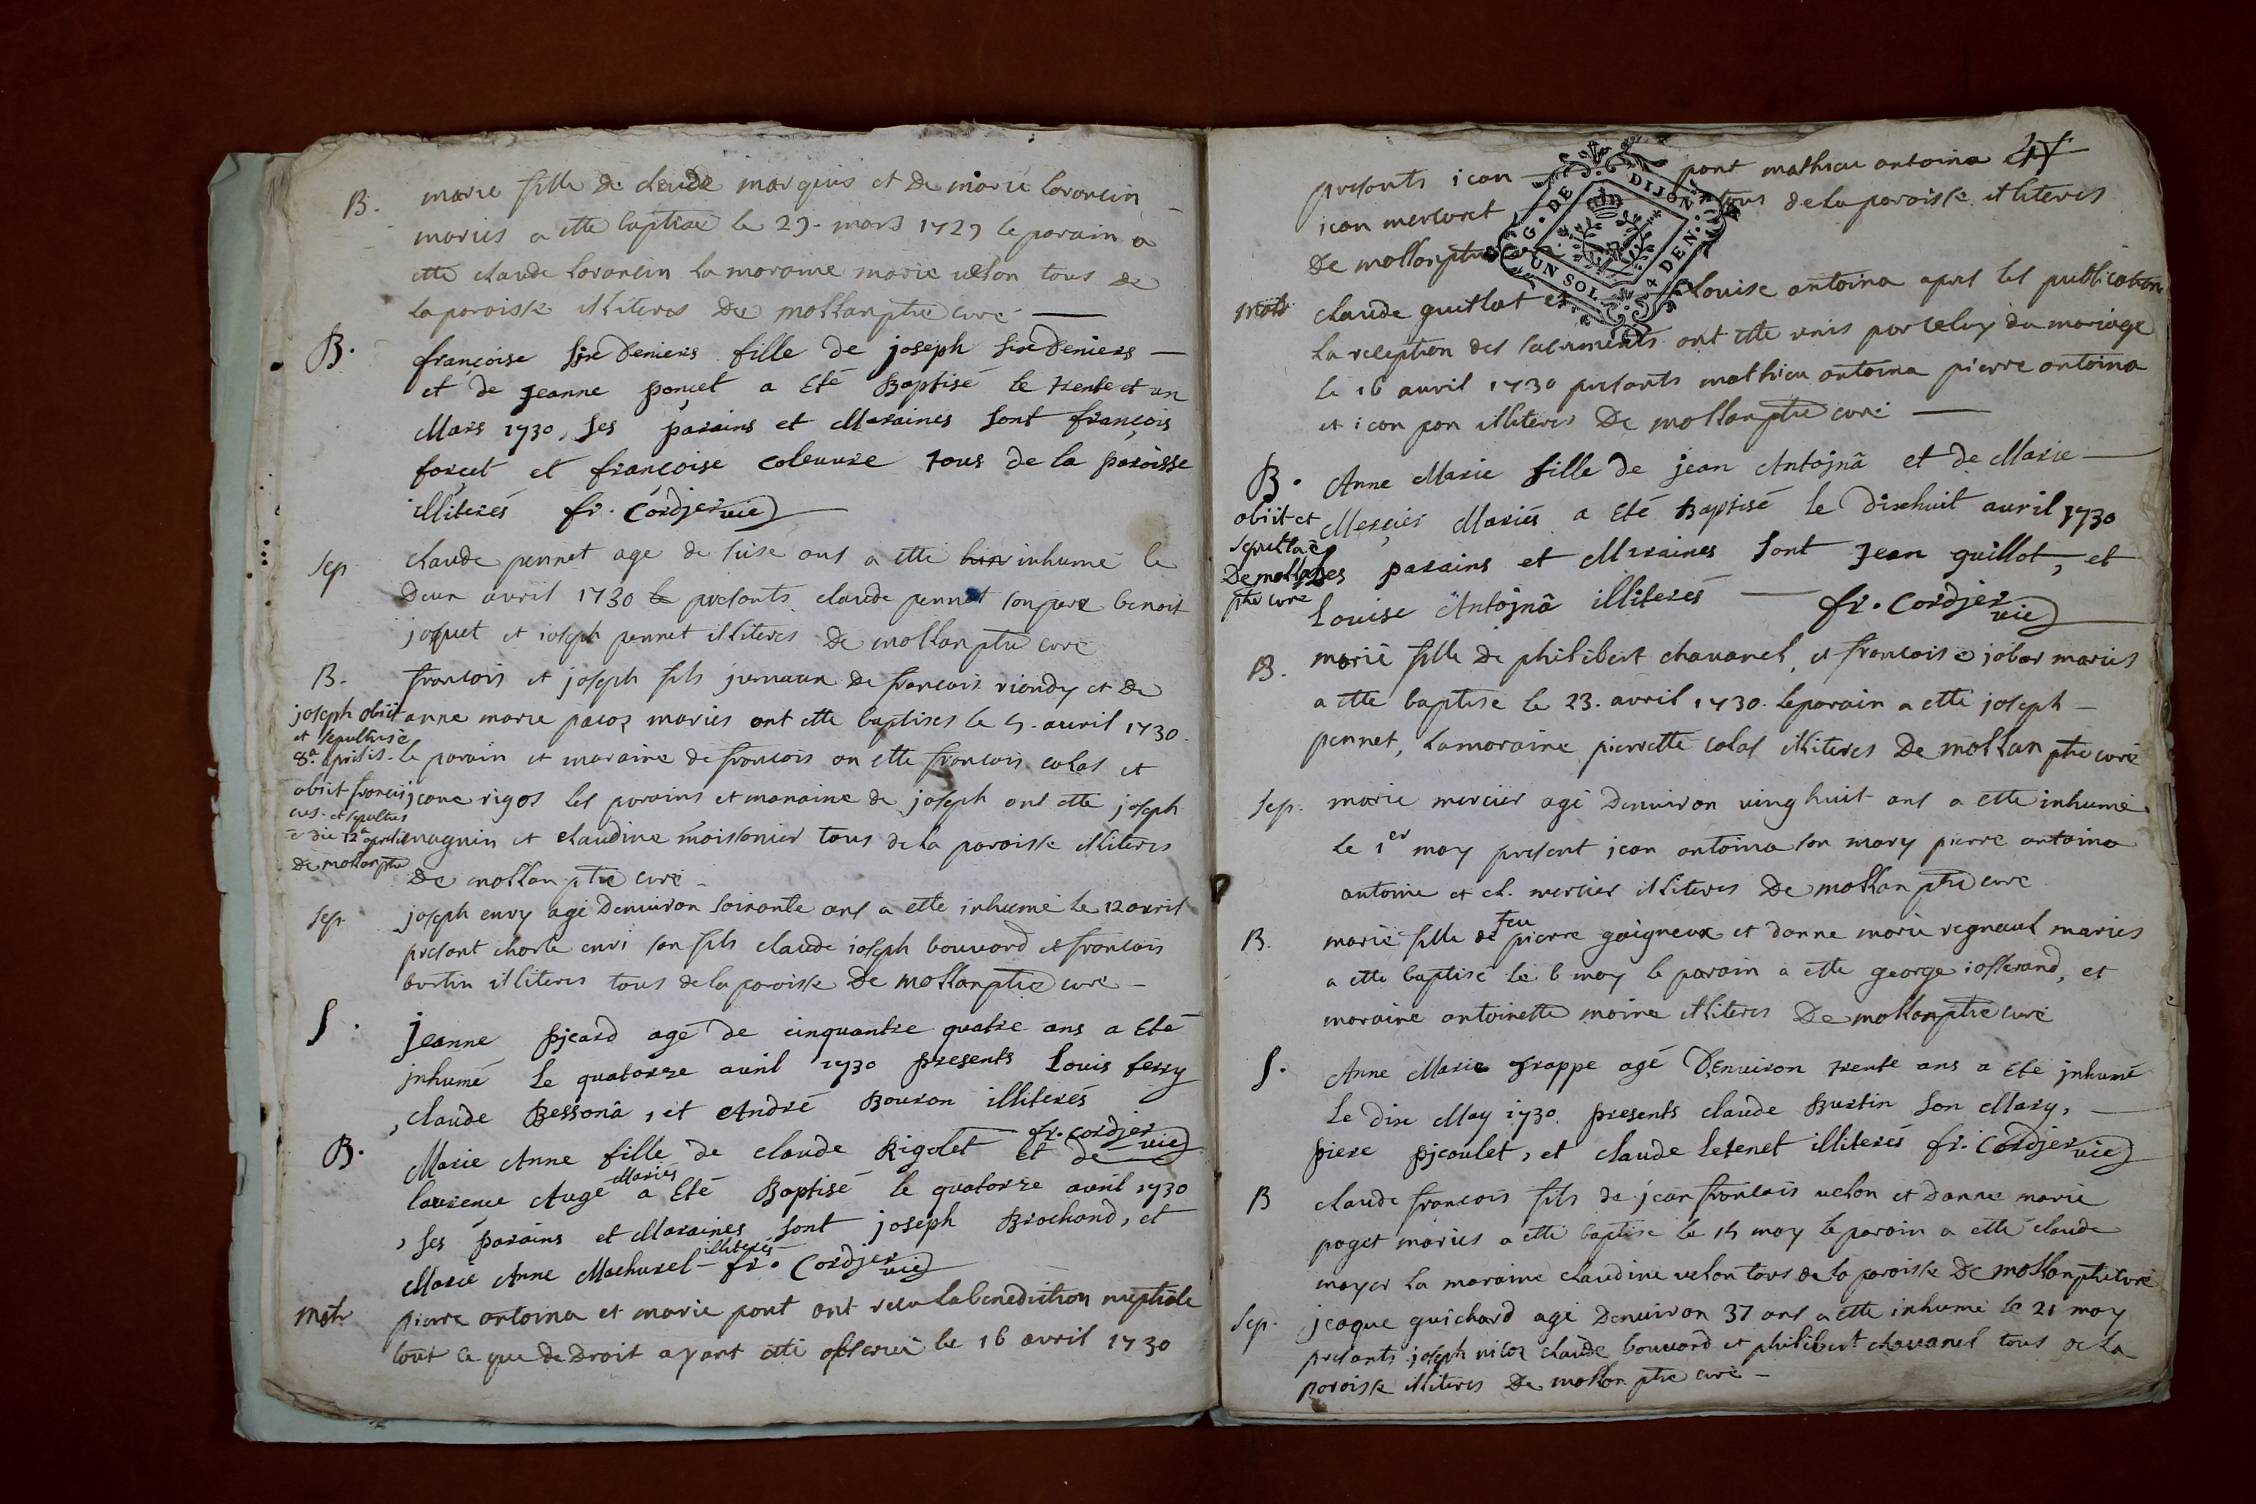 B. marie fille de claude marquis et de marie lorancin
mariés a etté baptisée le 29. mars 1729 le parain a
etté claude lorancin la maraine marie uelon tous de
la paroisse illiteres De mollan ptre curé
B. françoise sixdeniers fille de joseph sixdeniers
et de jeanne ponçet a Eté Baptisé le trente et un
Mars 1730, ses parains et Maraines sont françois
forçet et françoise coleuure tous de la paroisse
illiterés fr. Cordjer vic
sep claude pennet age de saise ans a etté inhumé le
Deux avril 1730 presants claude pennet son pere benoit
joquet et ioseph pennet illiteres De mollan ptre curé
B. francois et joseph fils jumaux De francois riondy et De
joseph obiit anne marie pacoz mariés ont etté baptises le 5. auril 1730.
et sepultus è
8a. aprilis. le parain et maraine de francois on etté francois colas et
obiit francis jeane rigos les parains et maraine de joseph ont etté joseph
cus. et sepultus
è die 12a aprilis magnin et claudine moissonier tous de la paroisse illiteres
De mollan ptre
De mollan ptre curé
sep. joseph envy agé Denuiron soixante ans a etté inhumé le 12 avril
presant charle envi son fils claude ioseph bouuard et francois
burtin illiteres tous de la paroisse De mollan ptre curé
S. jeanne pjcard agé de cinquantre quatre ans a Eté
jnhumé Le quatorze auril 1730 presents Louis ferry
, claude Bessonâ, et André Bouron illiterés
fr. cordjer vic
B. Marie Anne fille de claude Rigolet et de
Mariés
laurence Augé a Eté Baptisé le quatorze avril 1730
, ses parains et Maraines sont joseph Brochand, et
illiterés
Marie Anne Machurel fr. Cordjer vic
Matr pierre antoina et marie pont ont recu la benediction nuptiale
tout ce que de Droit ayant etté obserué le 16 avril 1730
4
presants ican pont mathieu antoina
ican merconet tous de la paroisse illiteres
De mollan ptre
G. DE DIJON
UN SOL 4 DEN.
Matr claude guillot et Louise antoina apres les publications
La reception des sacrments ont etté unis par celuy du mariage
le 16 auril 1730 presants mathieu antoina pierre antoina
et ican pon illiteres De mollan ptre curé
B. Anne Marie fille de jean Antojnâ et de Marie
obiit et Merçier Mariés a Eté Baptisé Le dixhuit auril 1730
sepulta è
De mollan Ses parains et Maraines sont Jean guillot, et
ptre curé
Louise Antojnâ illiterés fr. Cordjer vic
B. marie fille de philibert chauanel, et francoise jobar mariés
a etté baptisé le 23. avril 1730. le parain a etté joseph
pennet, la maraine pierrette colas illiteres De mollan ptre curé
sep. marie mercier agé Denuiron uing huit ans a etté inhumé
Le 1er may present jean antoina son mary pierre antoina
antoine et cl. mercier illiteres De mollan ptre curé
feu
B. marie fille de pierre gaigneux et danne marie regnaul mariés
a etté baptisé le 6 may le parain a etté george iosserand, et
maraine antoinette moine illiteres De mollan ptre curé
S. Anne Marie frappe agé Denuiron trente ans a Eté jnhumé
Le dix May 1730. presents claude Burtin son Mary,
piere pjcoulet, et claude Letenet illiterés fr. Cordjer vic
B claude francois fils de jean francois uelon et danne marie
poget mariés a etté baptisé le 15 may le parain a etté claude
moyer la maraine claudine uelon tous de la paroisse De mollan ptre curé
sep. jcaque guichard agé Denuiron 37 ans a etté inhumé le 21 may
presants joseph nicoz claude bouuard et philibert chauanel tous de la
paroisse illiteres De mollan ptre curé